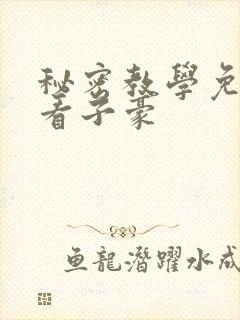 秘密教學免
看子豪
鱼龍潛躍水成